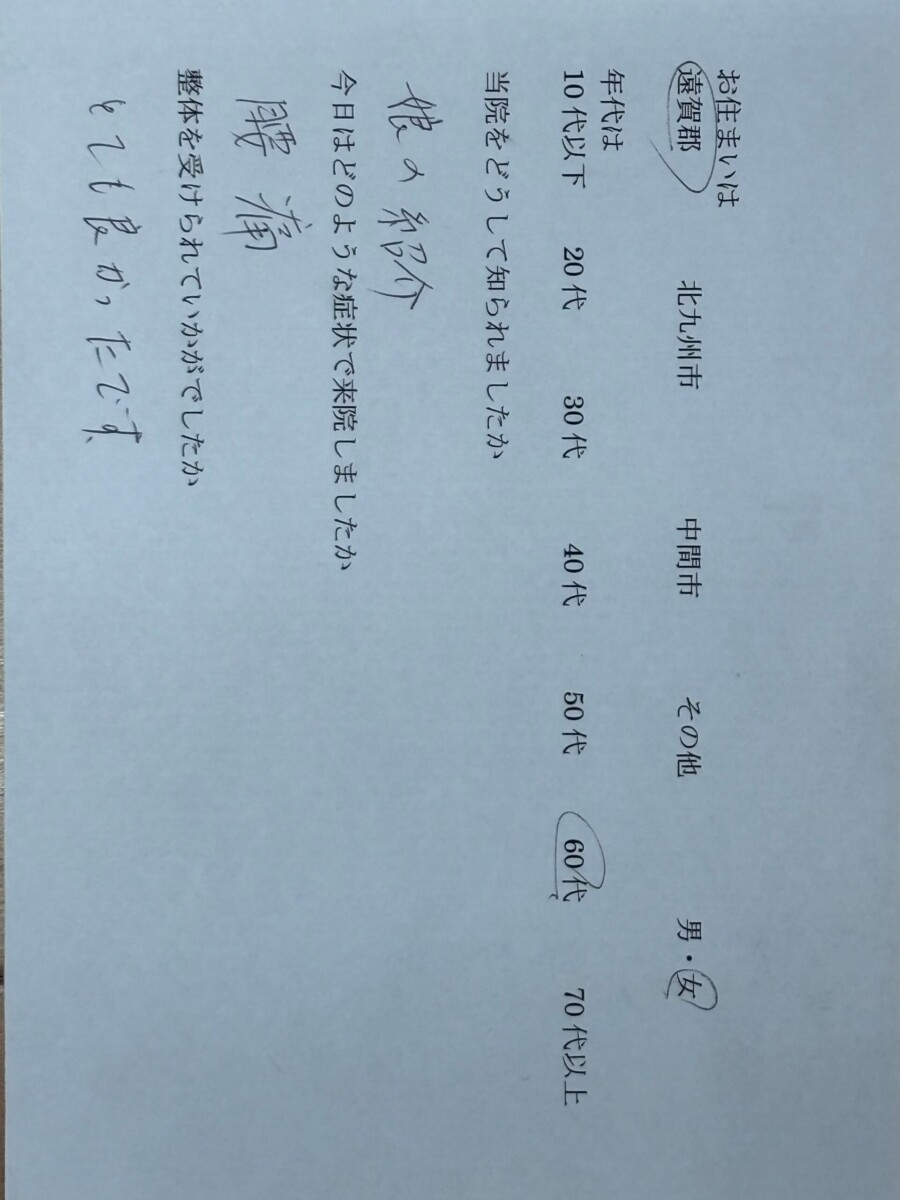 お住まいは
遠賀郡 北九州市 中間市 その他 男・女
年代は
10代以下 20代 30代 40代 50代 60代 70代以上
当院をどうして知られましたか
娘の紹介
今日はどのような症状で来院しましたか
腰痛
整体を受けられていかがでしたか
とても良かったです、